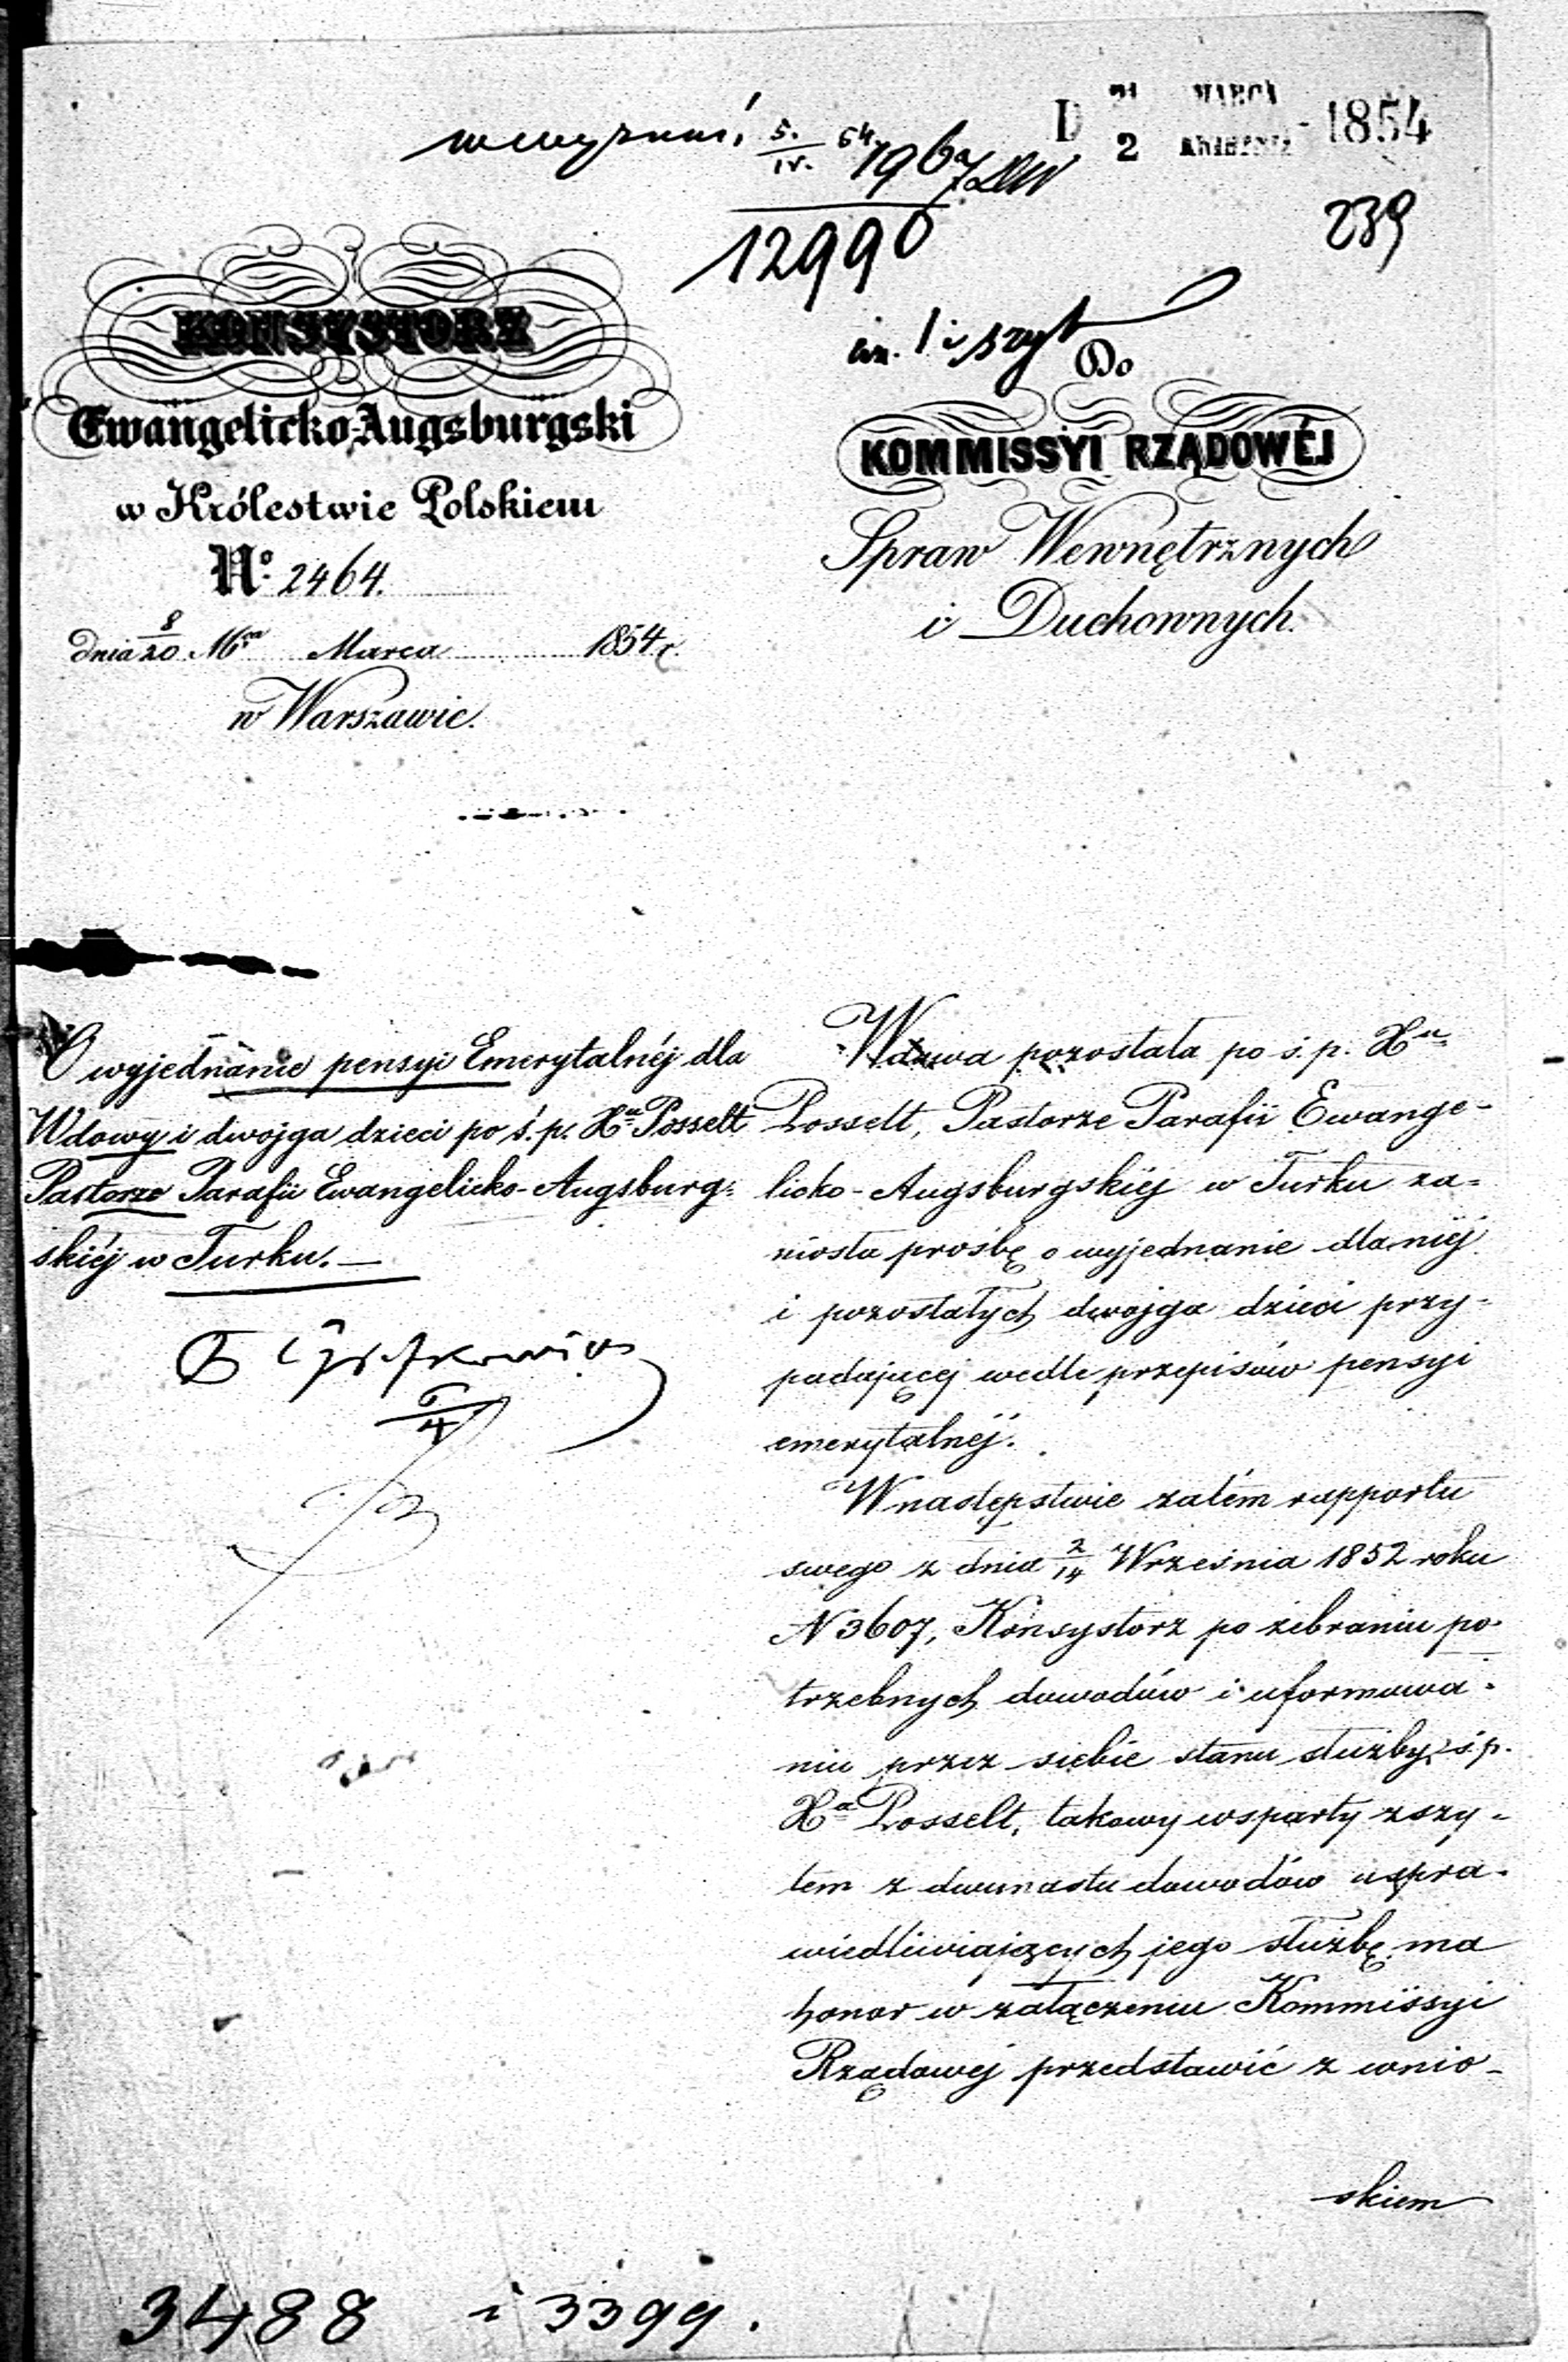 D 21 MARCA
2 KWIETNIA 1854
5. 64
IV.
1967
12990
239
szyt
KONSYSTORZ
Ewangelicko-Augsburgski
w Królestwie Polskiem
No. 2464.
dnia 8/20 Mca Marca 1854 r.
w Warszawie.
Do
KOMMISSYI RZĄDOWÉJ
Spraw Wewnętrznych
i Duchownych.
O wyjednanie pensyi Emerytalnéj dla
Wdowy i dwojga dzieci po ś. p. Xu Posselt
Pastorze Parafii Ewangelicko-Augsburg=
skiéj w Turku. —
6/4
Wdowa pozostała po ś. p. Xu
Posselt, Pastorze Parafii Ewange-
licko-Augsburgskiéj w Turku za=
niosła prośbę o wyjednanie dla niéj
i pozostałych dwojga dzieci przy-
padającej wedle przepisów pensyi
emerytalnéj.
W następstwie zatém rapportu
swego z dnia 2/14 Września 1852 roku
N 3607, Konsystorz po zebraniu po-
trzebnych dowodów i uformowa-
niu przez siebie stanu służby ś. p.
Xa Posselt, takowy wsparty zszy-
tem z dwunastu dowodów uspra-
wiedliwiających jego służbę ma
honor w załączeniu Kommissyi
Rządowéj przedstawić z wnio-
skiem
3488 i 3399.